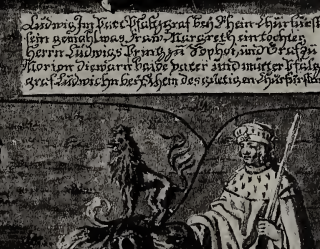 Ludwig Im part Pfaltzgraf beÿ Rhein Churfürst
sein gemahl was fraw Margreth ein tochter
Herrn Ludwigs Printz zu Sophoi, und Graf zu
Morion die warn baide vater und mutter Pfaltz
graf Ludwichn beÿ Rhein des gütigen Churfürsten